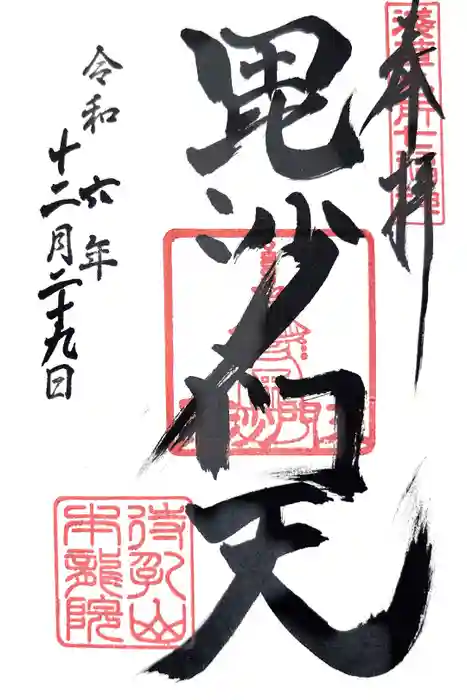 奉拝
浅草名所七福神
毘沙门天
令和六年
十二月二十九日
待乳山
本龍院